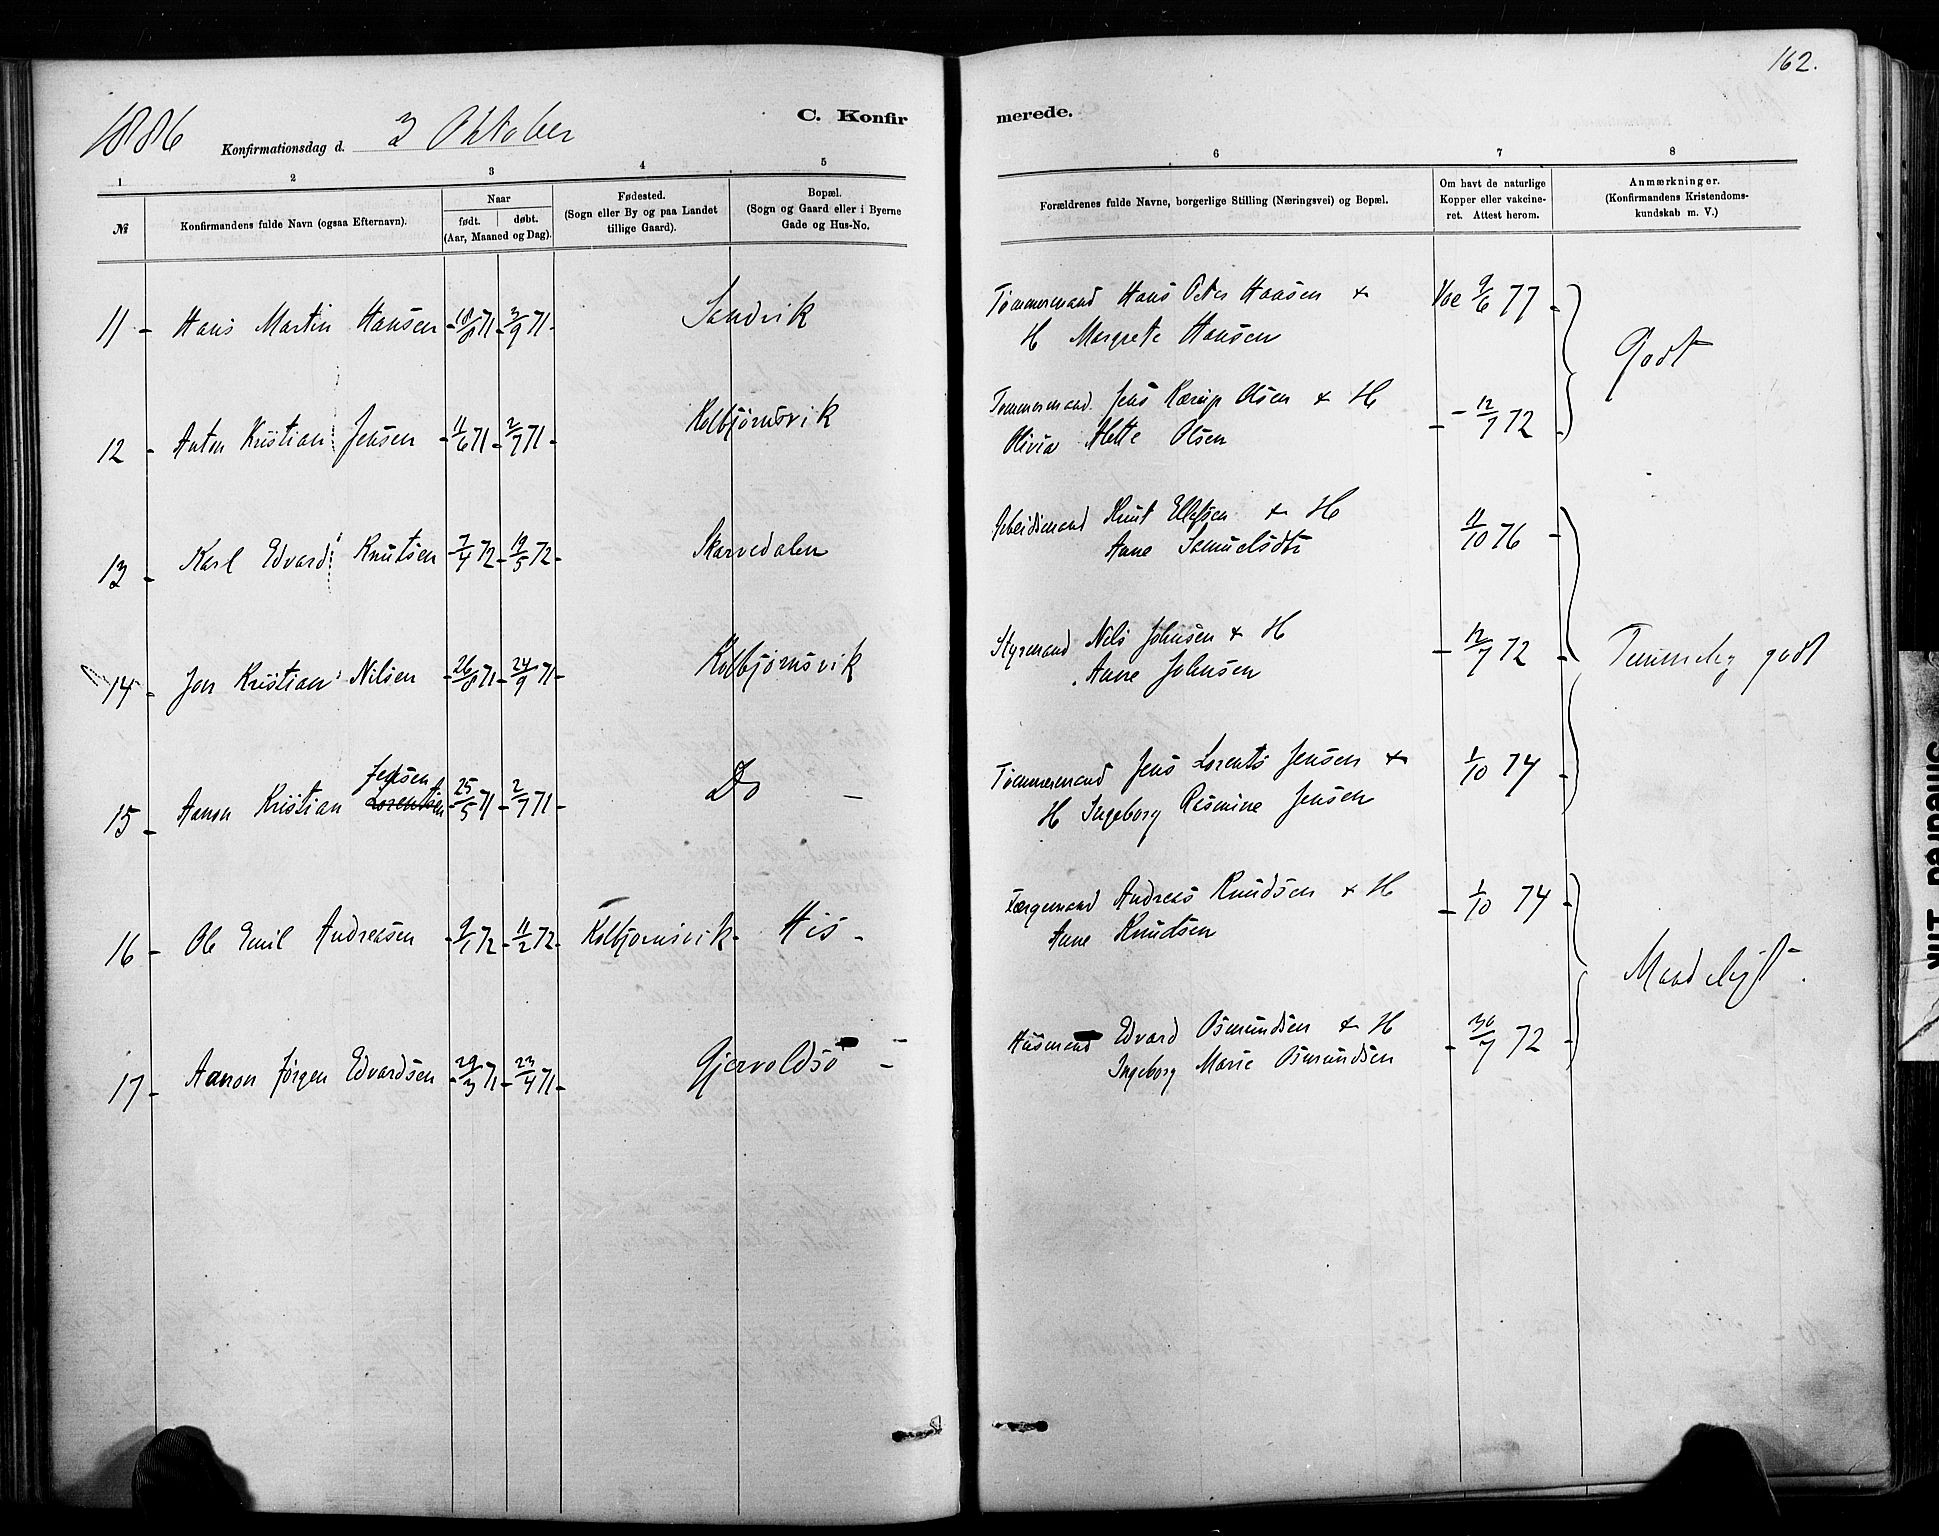 162.
1886 Konfirmationsdag d. 3 Oktober
C. Konfir merede.
1 2 3 4 5 6 7 8
№
Konfirmandens fulde Navn (ogsaa Efternavn).
Naar
født. døbt.
(Aar, Maaned og Dag).
Fødested.
(Sogn eller By og paa Landet
tillige Gaard).
Bopæl.
(Sogn og Gaard eller i Byerne
Gade og Hus-No.
Forældrenes fulde Navne, borgerlige Stilling (Næringsvei) og Bopæl.
Om havt de naturlige
Kopper eller vakcine-
ret. Attest herom.
Anmærkninger.
(Konfirmandens Kristendoms-
kundskab m. V.)
11 - Hans Martin Hansen - 18/8 71 - 3/9 71 - Sandvik Tømmermand Hans Peter Hansen + Vac 9/6 77 -
H Margrete Hansen
Godt
12 - Anton Kristian Jensen - 11/6 71 - 2/7 71 - Kolbjørnsvik Tømmermand Jens Kærup Olsen + H - 12/7 72 -
Olivia Alette Olsen
13 - Karl Edvard Knutsen - 7/4 72 - 19/5 72 - Skarvedalen Arbeidsmand Knut Ellefsen + H 11/10 76 -
Anne Samuelsdtr
14 - Jon Kristian Nilsen - 26/8 71 - 24/9 71 - Kolbjørnsvik Styrmand Nils Johnsen + H - 12/7 72 -
Anne Johnsen
Temmelig godt
15 - Aanon Kristian Lorentsen Jensen - 25/5 71 - 2/7 71 - Do - Tømmermand Jens Lorents Jensen + 1/10 74 -
H Ingeborg Rasmine Jensen
16 - Ole Emil Andreasen - 9/1 72 - 11/2 72 - Kolbjørnsvik - His - Færgemand Andreas Knudsen + H - 1/10 74 -
Anne Knudsen
Maadeligt -
17 - Aanon Jørgen Edvardsen - 29/3 71 - 23/4 71 - Gjervoldsø - Husmand Edvard Osmundsen + H - 30/7 72 -
Ingeborg Marie Osmundsen